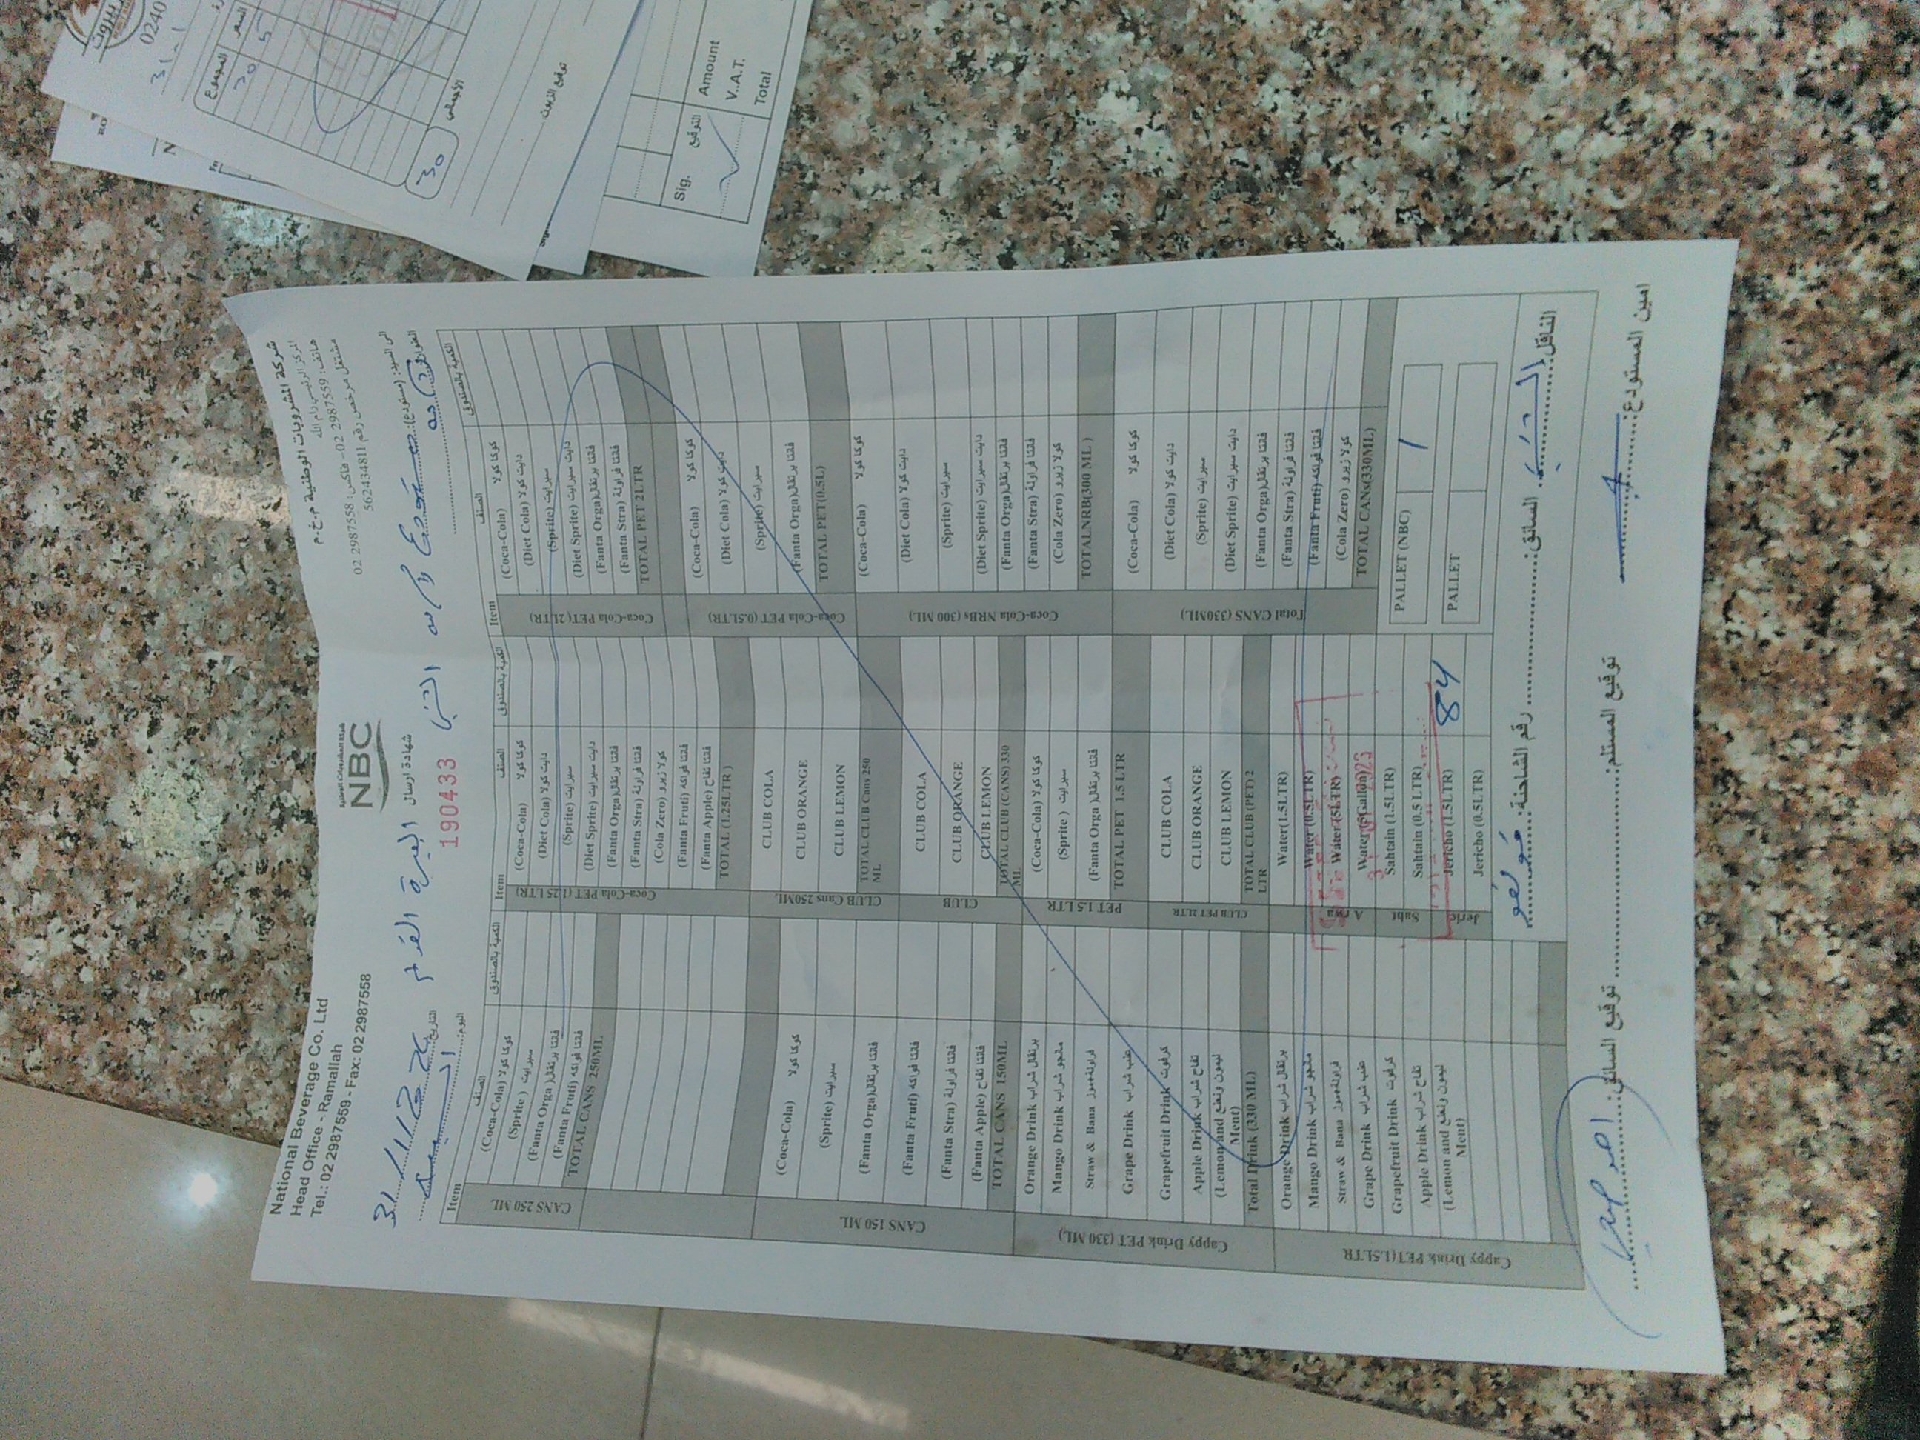 National Beverage Co. Ltd
Head Office - Ramallah
Tel.: 02 2987559 - Fax: 02 2987558
شركة المشروبات الوطنية
NBC
شركة المشروبات الوطنية م.خ.م
المركز الرئيسي رام الله
هاتف: 2987559 02 - فاكس: 2987558 02
مشتغل مرخص رقم 562434811
شهادة ارسال
190433
التاريخ:
اليوم:
الى السيد: (مستودع):
Item الصنف الكمية بالصندوق
CANS 250 ML
(Coca-Cola) كوكا كولا
(Sprite) سبرايت
(Fanta Orga) فنتا برتقال
(Fanta Fruti) فنتا فواكه
TOTAL CANS 250ML
CANS 150 ML
(Coca-Cola) كوكا كولا
(Sprite) سبرايت
(Fanta Orga) فنتا برتقال
(Fanta Fruti) فنتا فواكه
(Fanta Stra) فنتا فراولة
(Fanta Apple) فنتا تفاح
TOTAL CANS 150ML
Cappy Drink PET (330 ML)
Orange Drink برتقال شراب
Mango Drink مانجو شراب
Straw & Bana فراولة+موز
Grape Drink عنب شراب
Grapefruit Drink كرفوت
Apple Drink تفاح شراب
(Lemon and ليمون ونعنع
Ment)
Total Drink (330 ML)
Cappy Drink PET(1.5LTR
Orange Drink برتقال شراب
Mango Drink مانجو شراب
Straw & Bana فراولة+موز
Grape Drink عنب شراب
Grapefruit Drink كرفوت
Apple Drink تفاح شراب
(Lemon and ليمون ونعنع
Ment)
Item الصنف الكمية بالصندوق
Coca-Cola PET (1.25 LTR)
(Coca-Cola) كوكا كولا
(Diet Cola) دايت كولا
(Sprite) سبرايت
(Diet Sprite) دايت سبرايت
(Fanta Orga) فنتا برتقال
(Fanta Stra) فنتا فراولة
(Cola Zero) كولا زيرو
(Fanta Fruti) فنتا فواكه
(Fanta Apple) فنتا تفاح
TOTAL (1.25LTR)
CLUB Cans 250ML
CLUB COLA
CLUB ORANGE
CLUB LEMON
TOTAL CLUB Cans 250
ML
CLUB
CLUB COLA
CLUB ORANGE
CLUB LEMON
TOTAL CLUB (CANS) 330
ML
PET 1.5 LTR
(Coca-Cola) كوكا كولا
(Sprite) سبرايت
(Fanta Orga) فنتا برتقال
TOTAL PET 1.5 LTR
CLUB PET 2LTR
CLUB COLA
CLUB ORANGE
CLUB LEMON
TOTAL CLUB (PET) 2
LTR
Arwa
Water(1.5LTR)
Water (0.5LTR)
Water (5LTR)
Water(5Gallon)
Saht
Sahtain (1.5LTR)
Sahtain (0.5 LTR)
Jeric
Jericho (1.5LTR) 84
Jericho (0.5LTR)
Item الصنف الكمية بالصندوق
Coca-Cola PET (2LTR)
(Coca-Cola) كوكا كولا
(Diet Cola) دايت كولا
(Sprite) سبرايت
(Diet Sprite) دايت سبرايت
(Fanta Orga) فنتا برتقال
(Fanta Stra) فنتا فراولة
TOTAL PET 2LTR
Coca-Cola PET (0.5LTR)
(Coca-Cola) كوكا كولا
(Diet Cola) دايت كولا
(Sprite) سبرايت
(Fanta Orga) فنتا برتقال
TOTAL PET(0.5L)
Coca-Cola NRBs (300 ML)
(Coca-Cola) كوكا كولا
(Diet Cola) دايت كولا
(Sprite) سبرايت
(Diet Sprite) دايت سبرايت
(Fanta Orga) فنتا برتقال
(Fanta Stra) فنتا فراولة
(Cola Zero) كولا زيرو
TOTAL NRB(300 ML)
Total CANS (330ML)
(Coca-Cola) كوكا كولا
(Diet Cola) دايت كولا
(Sprite) سبرايت
(Diet Sprite) دايت سبرايت
(Fanta Orga) فنتا برتقال
(Fanta Stra) فنتا فراولة
(Fanta Fruti) فنتا فواكه
(Cola Zero) كولا زيرو
TOTAL CANs(330ML)
PALLET (NBC) 1
PALLET
الناقل: السائق: رقم الشاحنة:
امين المستودع: توقيع المستلم: توقيع السائق:
0240
المجموع
30
5
30
الاجمالي
Sig. التوقيع
Amount
V.A.T.
Total